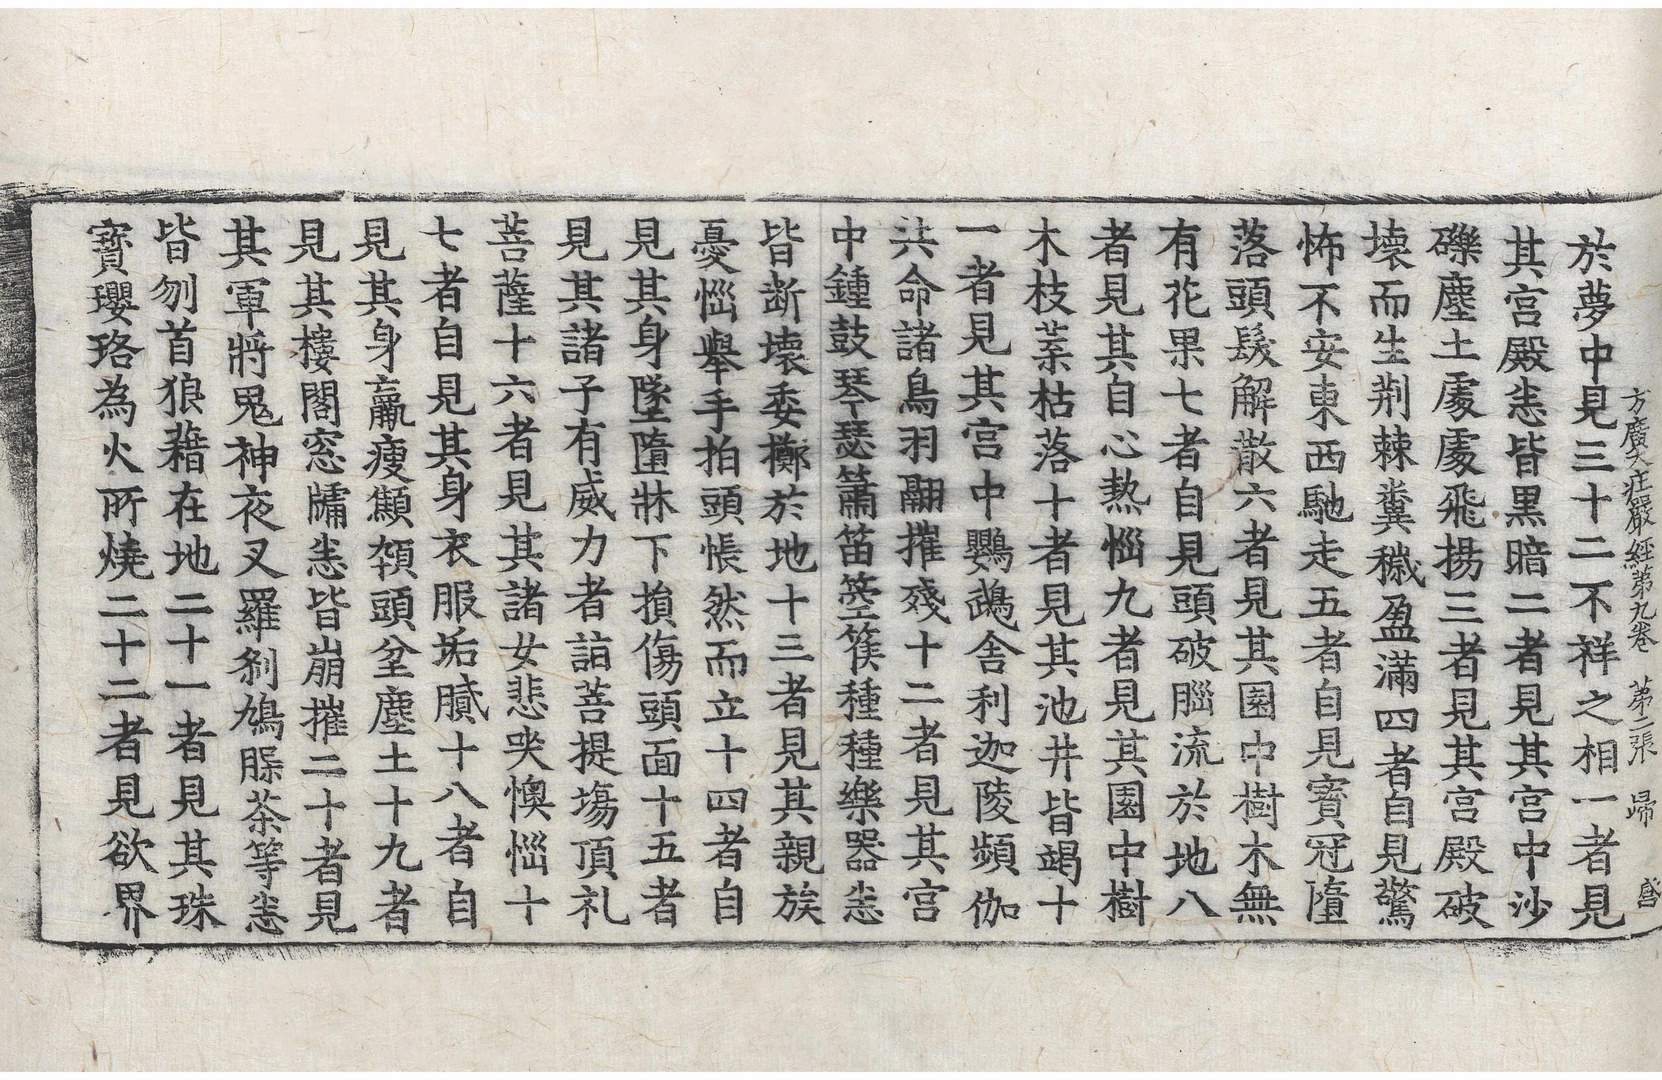 方廣大莊嚴經第九卷 第二張 歸
於夢中見三十二不祥之相一者見
其宮殿恚皆黑暗二者見其宮中沙
礫塵土處處飛揚三者見其宮殿破
壞而生荆棘糞穢盈滿四者自見驚
怖不安東西馳走五者自見寶冠墮
落頭髮解散六者見其園中樹木無
有花果七者自見頭破腦流於地八
者見其自心熱惱九者見其園中樹
木枝葉枯落十者見其池井皆竭十
一者見其宮中鸚鵡舍利迦陵頻伽
共命諸鳥羽翮摧殘十二者見其宮
中鍾鼓琴瑟簫笛箜篌種種樂器恚
皆断壞委擲於地十三者見其親族
憂惱舉手拍頭悵然而立十四者自
見其身墜墮牀下損傷頭面十五者
見其諸子有威力者詣菩提場頂礼
菩薩十六者見其諸女悲哭懊惱十
七者自見其身衣服垢膩十八者自
見其身羸瘦顦顇頭坌塵土十九者
見其樓閣窓牖恚皆崩摧二十者見
其軍將鬼神夜叉羅刹鳩槃茶等恚
皆刎首狼藉在地二十一者見其珠
寶瓔珞為火所燒二十二者見欲界